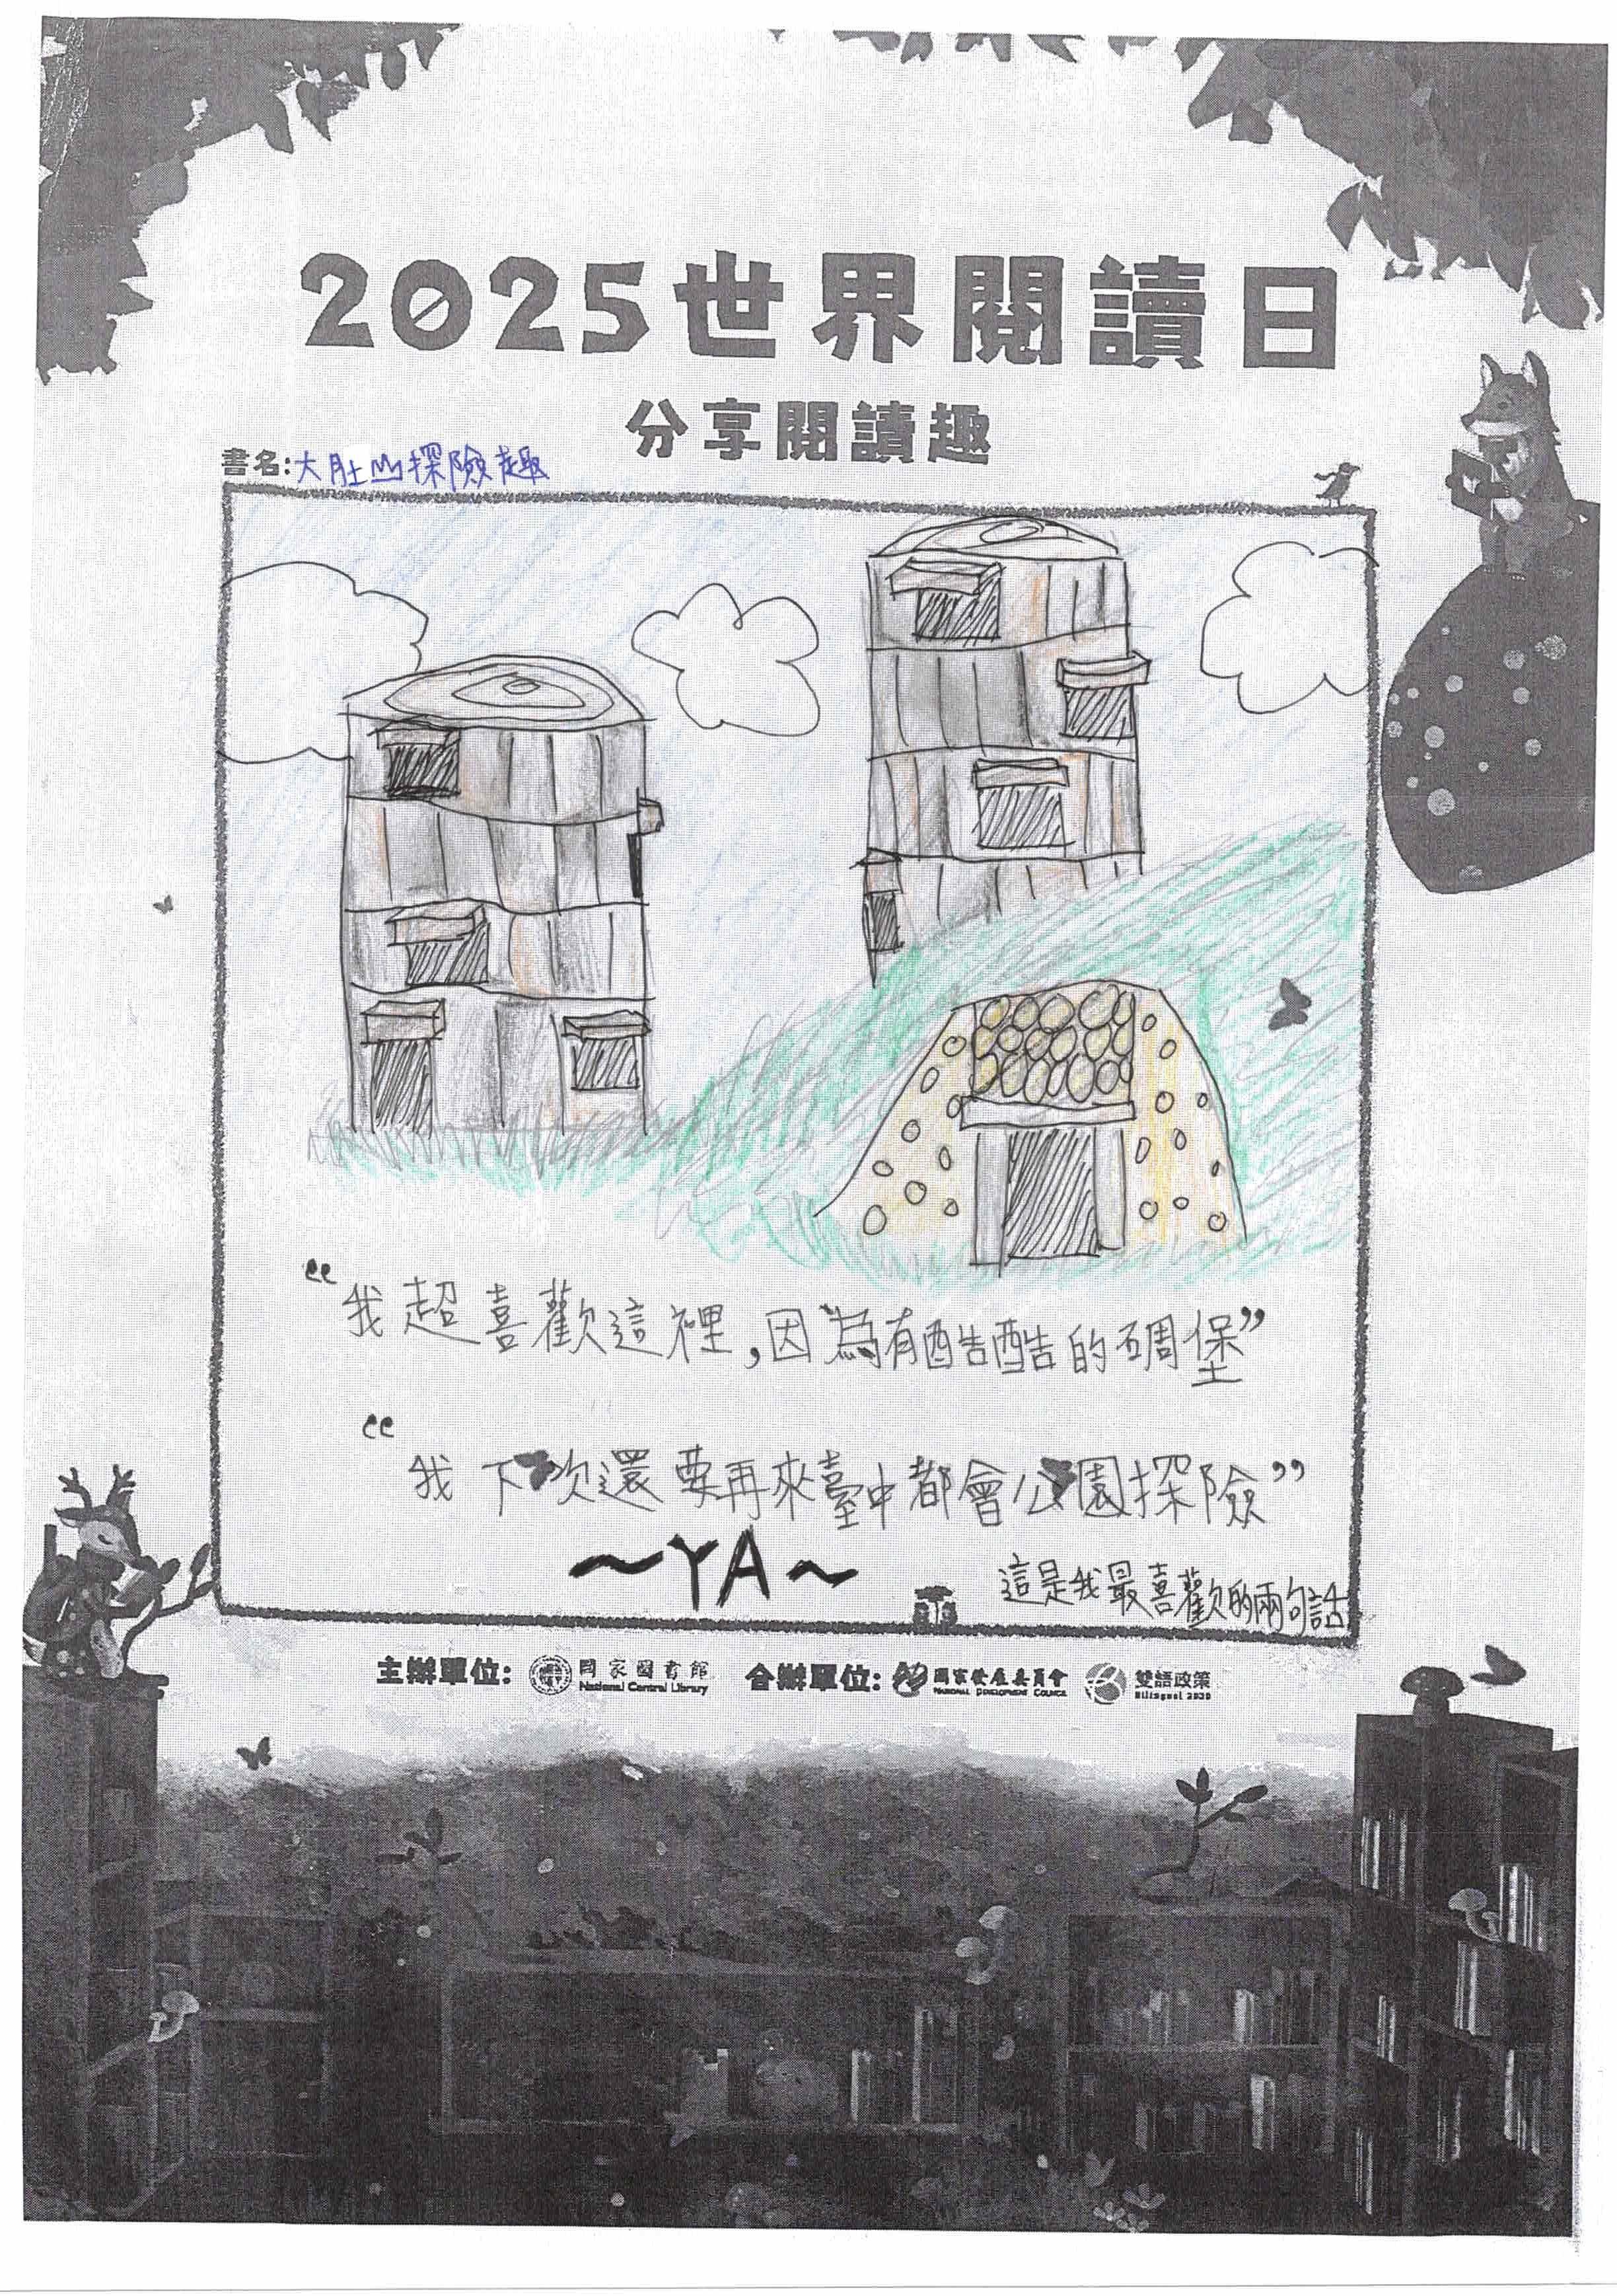 2025世界閱讀日
分享閱讀趣
書名:大肚山探險趣
“我超喜歡這裡,因為有酷酷的碉堡”
“我下次還要再來臺中都會公園探險”
~YA~
這是我最喜歡的兩句話
主辦單位: 國家圖書館 National Central Library 合辦單位: 國家發展委員會 National Development Council 雙語政策 Bilingual 2030